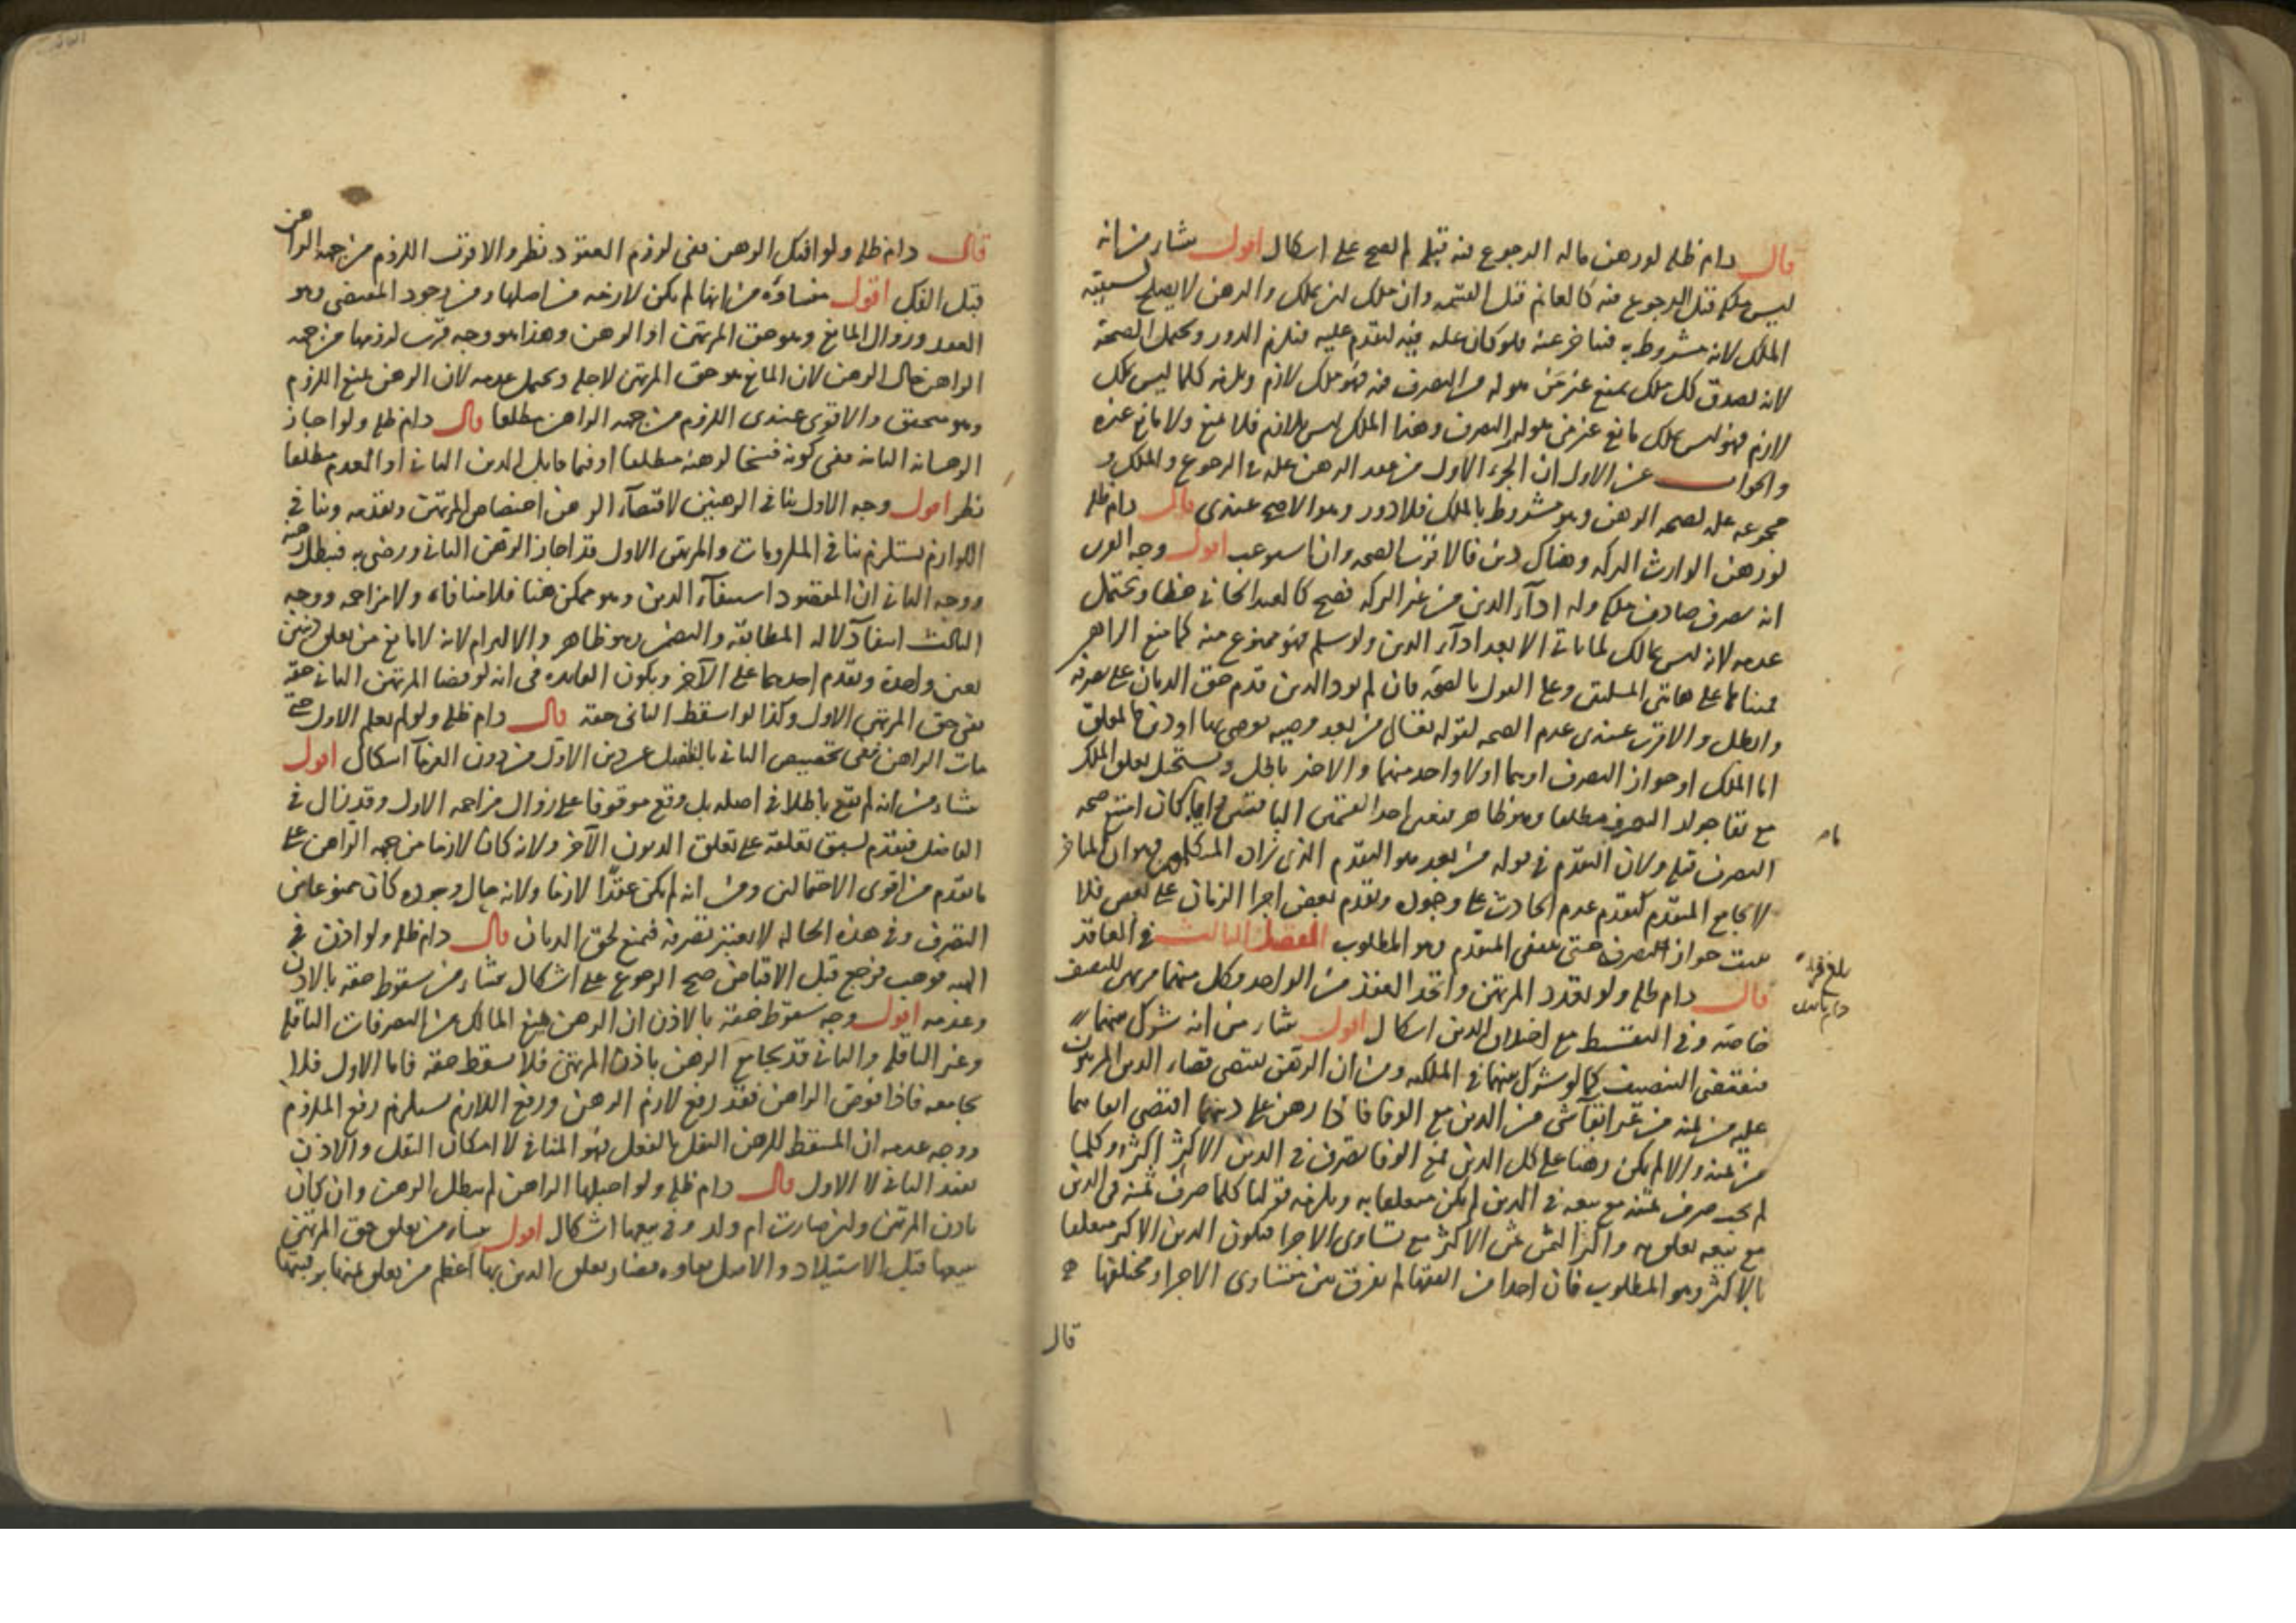 قال دام ظله لو رهن ماله الرجوع فيه قبله لم يصح على اشكال اقول ينشأ من انه
ليس ملكه قبل الرجوع فيه كالغانم قبل القسمه وان ملك ان يملك والرهن لا يصلح
الملك لانه مشروط به فيتأخر عنه فلو كان علة فيه لتقدم عليه فيلزم الدور ويحتمل الصحة
لانه يصدق كل ملك يمنع غير من هو له من التصرف فيه فهو ملك لازم ويلزمه كلما ليس بملك
لازم فهو ليس بملك مانع غير من هو له التصرف وهذا الملك ليس بلازم فلا يمنع ولا مانع غيره
والجواب عن الاول ان الجزء الاول من عقد الرهن علة في الرجوع والملك و
مجموعه علة لصحة الرهن وهو مشروط بالملك فلا دور وهو الاصح عندي قال دام ظله
لو رهن الوارث التركه وهناك دين فالاقرب الصحه وان استوعب اقول وجه القرب
انه تصرف صادف ملكه وله اداء الدين من غير التركه فصح كالعبد الجاني خطأ ويحتمل
عدمه لانه ليس بمالك لما يأتي الا بعد اداء الدين ولو سلم فهو ممنوع منه كما منع الراهن
وعلى القول بالصحة فان لم يؤد الدين قدم حق الديان على تصرفه
وابطل والاقرب عندي عدم الصحه لقوله تعالى من بعد وصيه يوصى بها او دين فالمعلق
اما الملك او جواز التصرف او هما او لا واحد منهما والاخير باطل ويستحيل تعليق الملك
مع بقاء جواز التصرف مطلقا وهو ظاهر فتعين احد القسمين الباقيين وايا ما كان امتنع صحه
التصرف قبله ولان التقدم في قوله من بعد هو التقدم الذي زاده المتكلمون وهو ان المتأخر
لا يجامع المتقدم كتقدم عدم الحادث على وجوده وتقدم بعض اجزا الزمان على بعض فلا
يثبت جواز التصرف حتى ينقضي المتقدم وهو المطلوب الفصل الثالث في العاقد
قال دام ظله ولو تعدد المرتهن واتحد العقد من الواحد فكل منهما مرتهن للنصف
خاصة وفي التقسيط مع اختلاف الدين اشكال اقول ينشأ من انه شرك بينهما
فيقتضي التنصيف كما لو شرك بينهما في الملكيه ومن ان الرهن يقتضي قضاء الدين المرهون
عليه من ثمنه من غير ابقاء شيء من الدين مع الوفا فاذا رهن على دينهما اقتضى ايفاهما
من ثمنه والا لم يكن رهنا على كل الدين فمع الوفا يصرف في الدين الاكثر اكثره وكلما
لم يجب صرف ثمنه مع بيعه في الدين لم يكن متعلقا به ويلزمه قولنا كلما صرف ثمنه في الدين
مع بيعه تعلق به واكثر الثمن ثمن الاكثر مع تساوى الاجزا فيكون الدين الاكثر متعلقا
بالاكثر وهو المطلوب فان احدا من الفقها لم يفرق بين متساوى الاجزاء ومختلفها
بلغ قراءة
دام ظله
قال
قال دام ظله ولو افتك الرهن ففي لزوم العقود نظر والاقرب اللزوم من جهة الراهن
قبل الفك اقول منشاؤه من انها لم يكن لازمه من اصلها ومن وجود المقتضى وهو
العقد وزوال المانع وهو حق المرتهن او الرهن وهذا هو وجه قرب لزومها من جهه
الراهن حال الرهن لان المانع هو حق المرتهن لاجله ويحتمل عدمه لان الرهن يمنع اللزوم
وهو متحقق والاقوى عندي اللزوم من جهه الراهن مطلقا قال دام ظله ولو اجاز
الرهانه الثانيه ففي كونه فسخا لرهنه مطلقا او فيما قابل الدين الثاني او العدم مطلقا
نظر اقول وجه الاول تنافي الرهنين لاقتضاء الرهن اختصاص المرتهن وتقدمه وتنافي
اللوازم يستلزم تنافي الملزومات والمرتهن الاول قد اجاز الرهن الثاني ورضي به فبطل رهنه
ووجه الثاني ان المقصود استيفاء الدين وهو ممكن هنا فلا منافاه ولا مزاحمه ووجه
الثالث انتفاء دلاله المطابقة والتضمن وهو ظاهر والالتزام لانه لا مانع من تعلق دينين
بعين واحدة وتقدم احدهما على الآخر ويكون الفايده في انه لو قضا المرتهن الثاني حقه
بقي حق المرتهن الاول وكذا لو اسقط الثاني حقه قال دام ظله ولو لم يعلم الاول حتى
مات الراهن ففي تخصيص الثاني بالفاضل عن دين الاول من دون الغرماء اشكال اقول
ينشأ من انه لم يقع باطلا في اصله بل وقع موقوفا على زوال مزاحمه الاول وقد زال في
الفاضل فيقدم لسبق تعلقه على تعلق الديون الآخر ولانه كان لازما من جهه الراهن على
ما تقدم من اقوى الاحتمالين ومن انه لم يكن عقدا لازما ولانه حال وجوده كان ممنوعا من
التصرف وفي هذه الحاله لا يعتبر تصرفه فيمنع لحق الديان قال دام ظله ولو اذن في
الهبه فوهب فرجع قبل الاقباض صح الرجوع على اشكال ينشأ من سقوط حقه بالاذن
وعدمه اقول وجه سقوط حقه بالاذن ان الرهن يمنع المالك من التصرفات الناقله
وغير الناقله والثاني قد يجامع الرهن باذن المرتهن فلا يسقط حقه فاما الاول فلا
يجامعه فاذا فوض الراهن فقد رفع لازم الرهن ورفع اللازم يستلزم رفع الملزوم
ووجه عدمه ان المسقط للرهن النقل بالفعل فهو المنافي لا امكان النقل والاذن
يفيد الثاني لا الاول قال دام ظله ولو احبلها الراهن لم يبطل الرهن وان كان
باذن المرتهن وان صارت ام ولد وفي بيعها اشكال اقول ينشأ من تعلق حق المرتهن
ببيعها قبل الاستيلاد والاصل بقاوه وتعلق الدين بها اعظم من تعلق ثمنها برقبتها